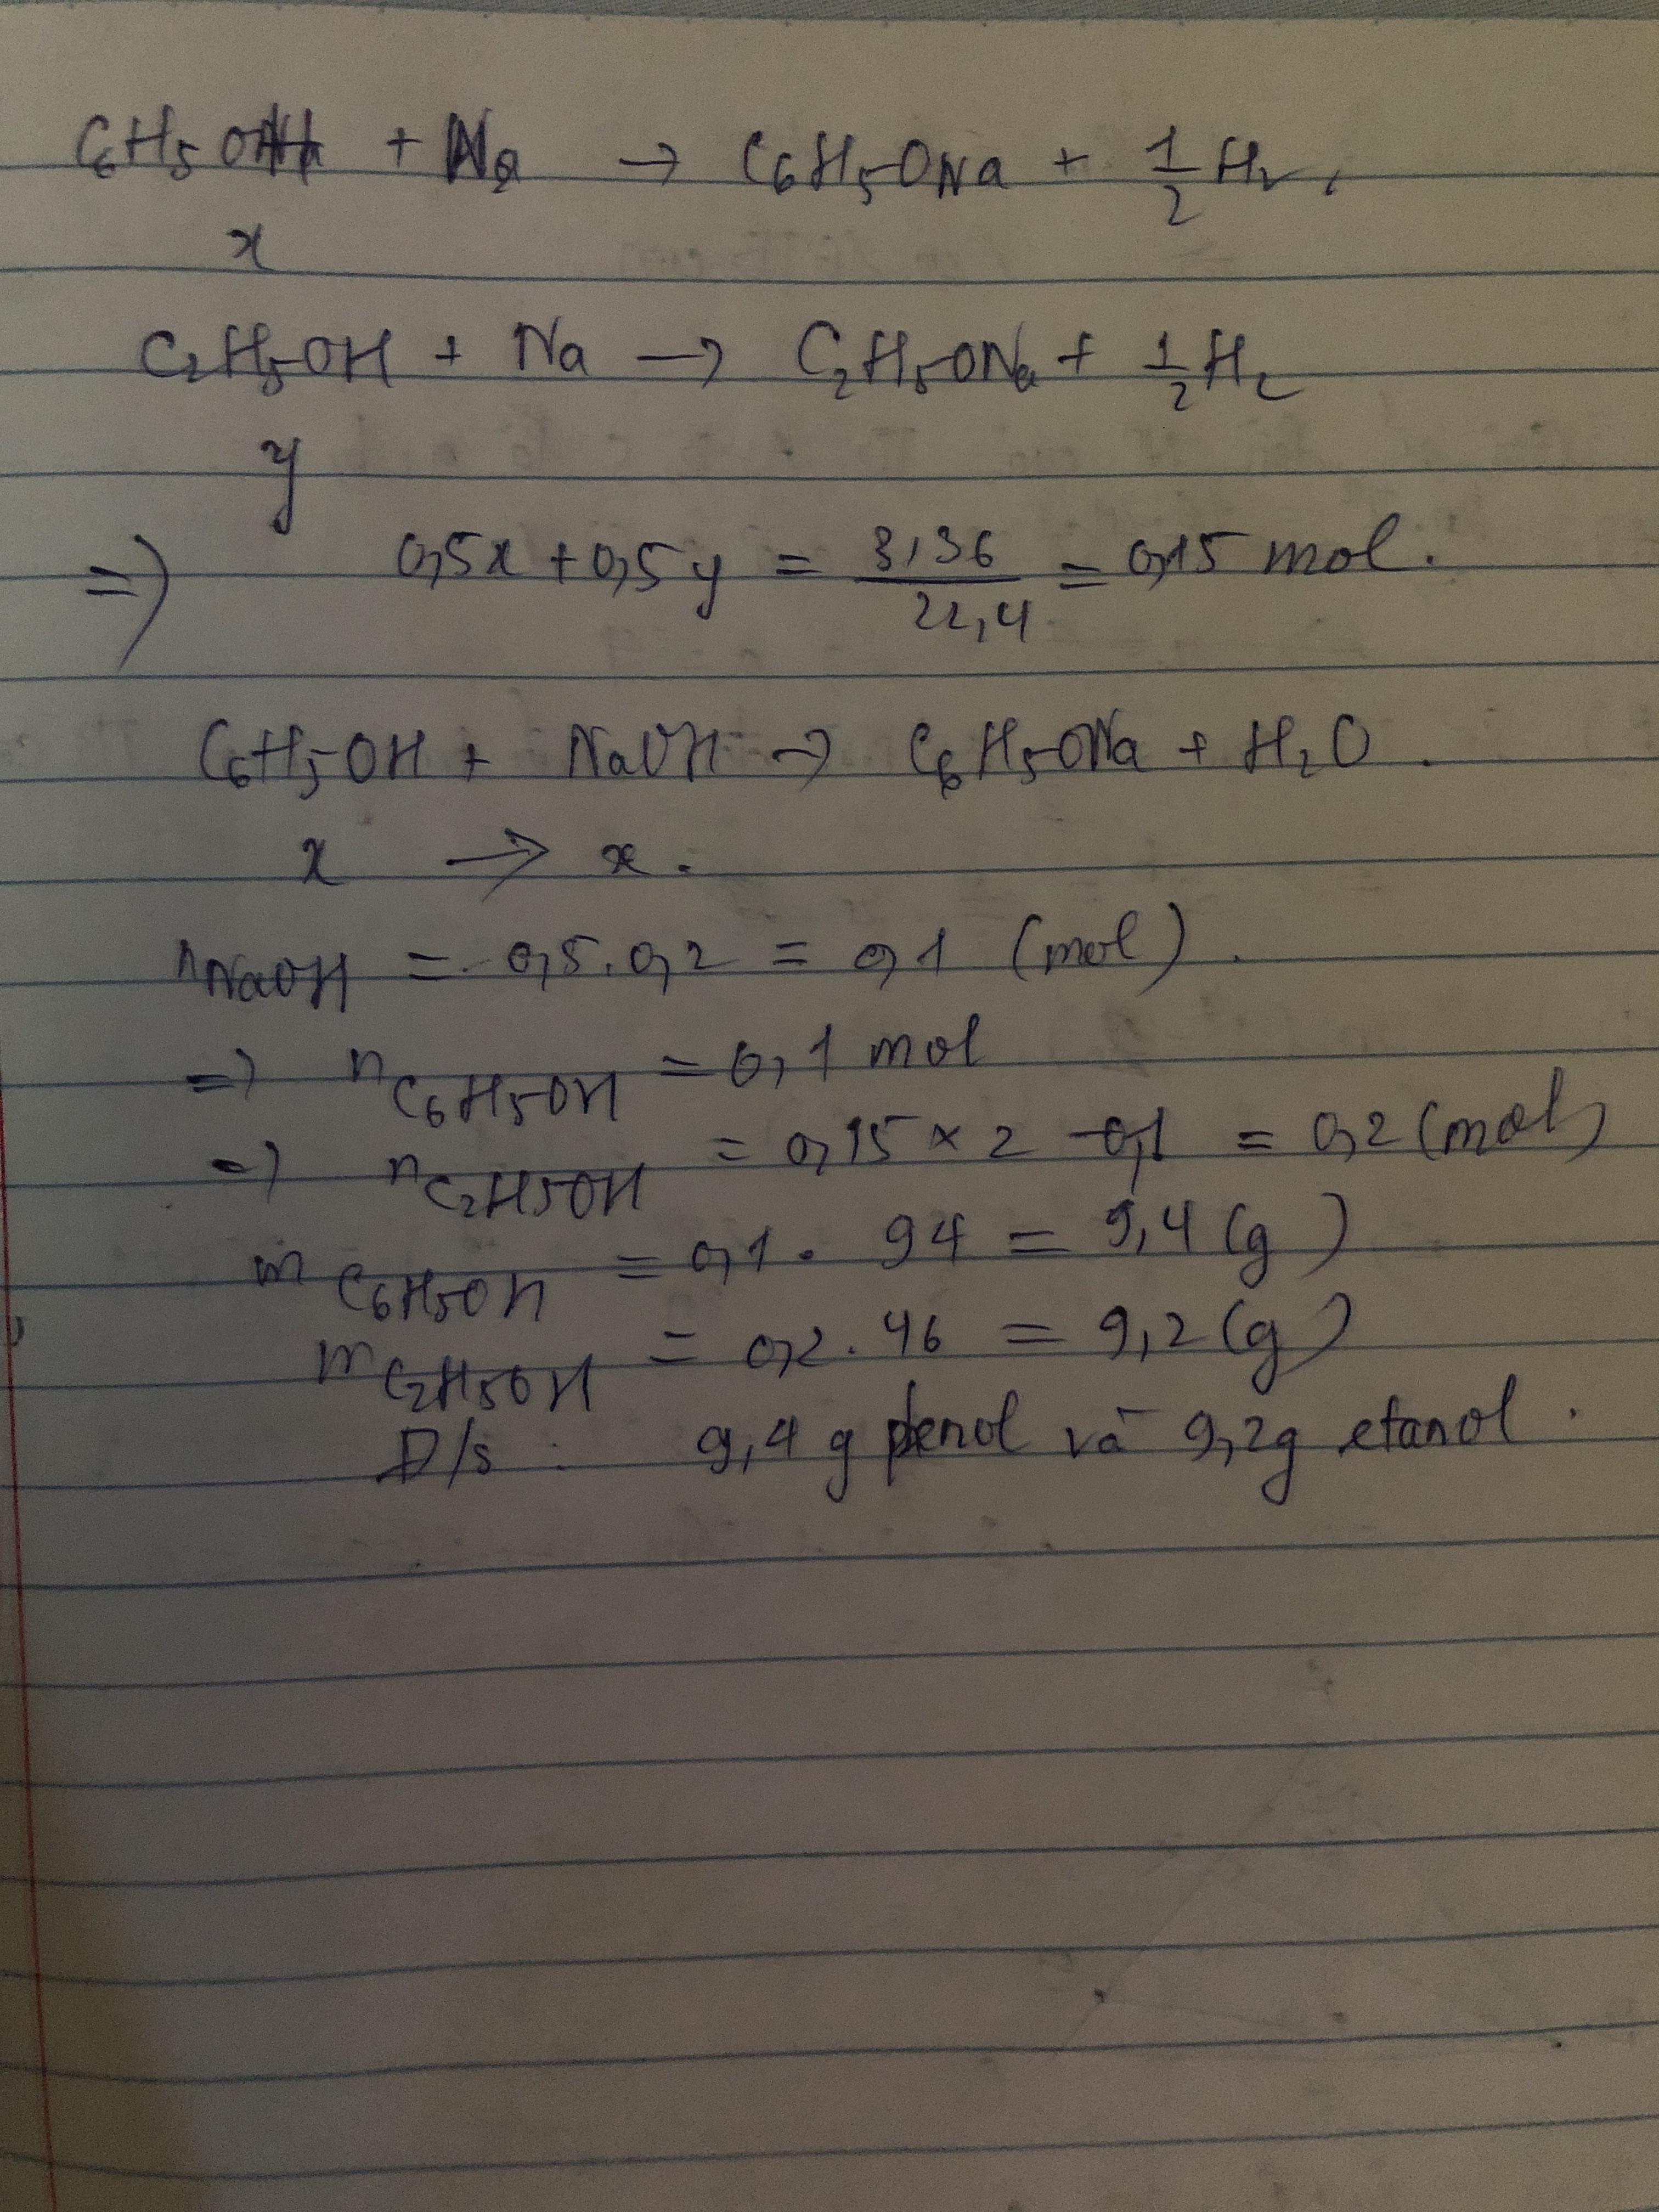 C₆H₅OH + Na → C₆H₅ONa + 1/2 H₂.
x
C₂H₅OH + Na → C₂H₅ONa + 1/2 H₂
y
=> 0,5x + 0,5y = 3,36/22,4 = 0,15 mol.
C₆H₅OH + NaOH → C₆H₅ONa + H₂O.
x → x.
nNaOH = 0,5.0,2 = 0,1 (mol).
=> nC₆H₅OH = 0,1 mol
=> nC₂H₅OH = 0,15 × 2 - 0,1 = 0,2 (mol)
mC₆H₅OH = 0,1. 94 = 9,4 (g)
mC₂H₅OH = 0,2. 46 = 9,2 (g)
Đ/s : 9,4 g phenol và 9,2g etanol.